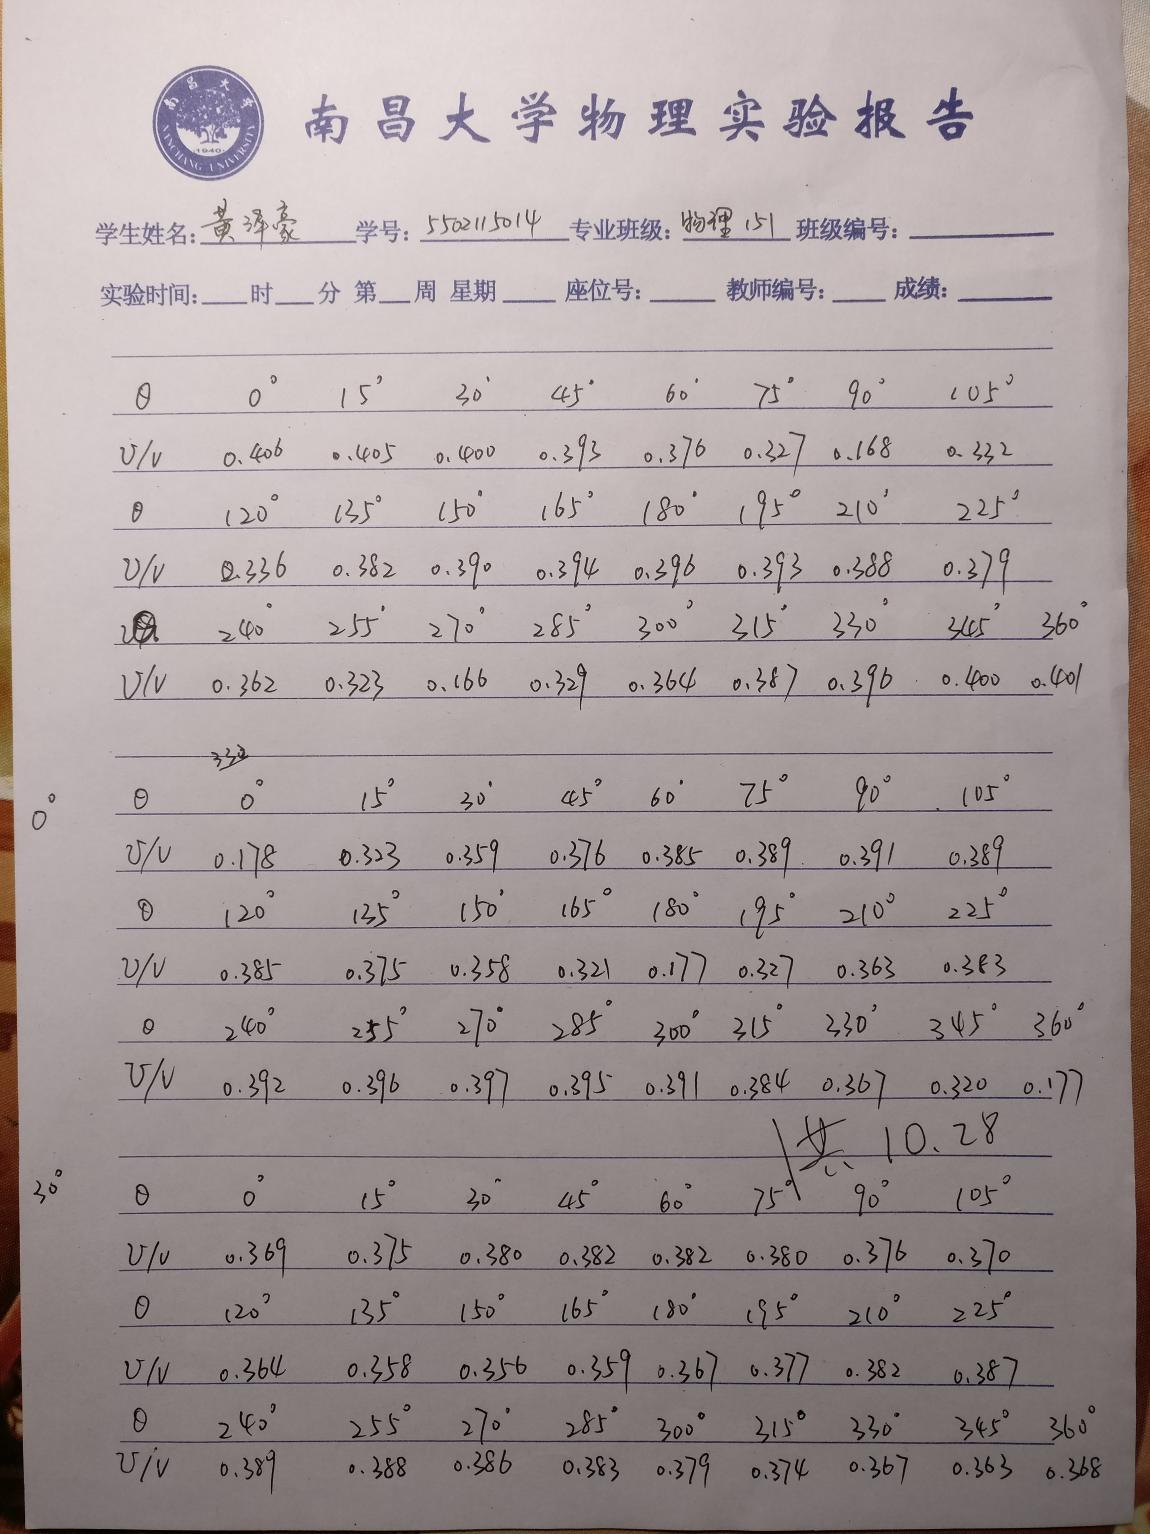 南昌大学
NANCHANG UNIVERSITY
·1940·
南昌大学物理实验报告
学生姓名: 黄泽豪 学号: 5502115014 专业班级: 物理151 班级编号:
实验时间: 时 分 第 周 星期 座位号: 教师编号: 成绩:
θ 0° 15° 30° 45° 60° 75° 90° 105°
U/V 0.406 0.405 0.400 0.393 0.376 0.327 0.168 0.332
θ 120° 135° 150° 165° 180° 195° 210° 225°
U/V 0.336 0.382 0.390 0.394 0.396 0.393 0.388 0.379
θ 240° 255° 270° 285° 300° 315° 330° 345° 360°
U/V 0.362 0.323 0.166 0.329 0.364 0.387 0.396 0.400 0.401
0° θ 0° 15° 30° 45° 60° 75° 90° 105°
U/V 0.178 0.323 0.359 0.376 0.385 0.389 0.391 0.389
θ 120° 135° 150° 165° 180° 195° 210° 225°
U/V 0.385 0.375 0.358 0.321 0.177 0.327 0.363 0.383
θ 240° 255° 270° 285° 300° 315° 330° 345° 360°
U/V 0.392 0.396 0.397 0.395 0.391 0.384 0.367 0.320 0.177
10.28
30° θ 0° 15° 30° 45° 60° 75° 90° 105°
U/V 0.369 0.375 0.380 0.382 0.382 0.380 0.376 0.370
θ 120° 135° 150° 165° 180° 195° 210° 225°
U/V 0.364 0.358 0.356 0.359 0.367 0.377 0.382 0.387
θ 240° 255° 270° 285° 300° 315° 330° 345° 360°
U/V 0.389 0.388 0.386 0.383 0.379 0.374 0.367 0.363 0.368